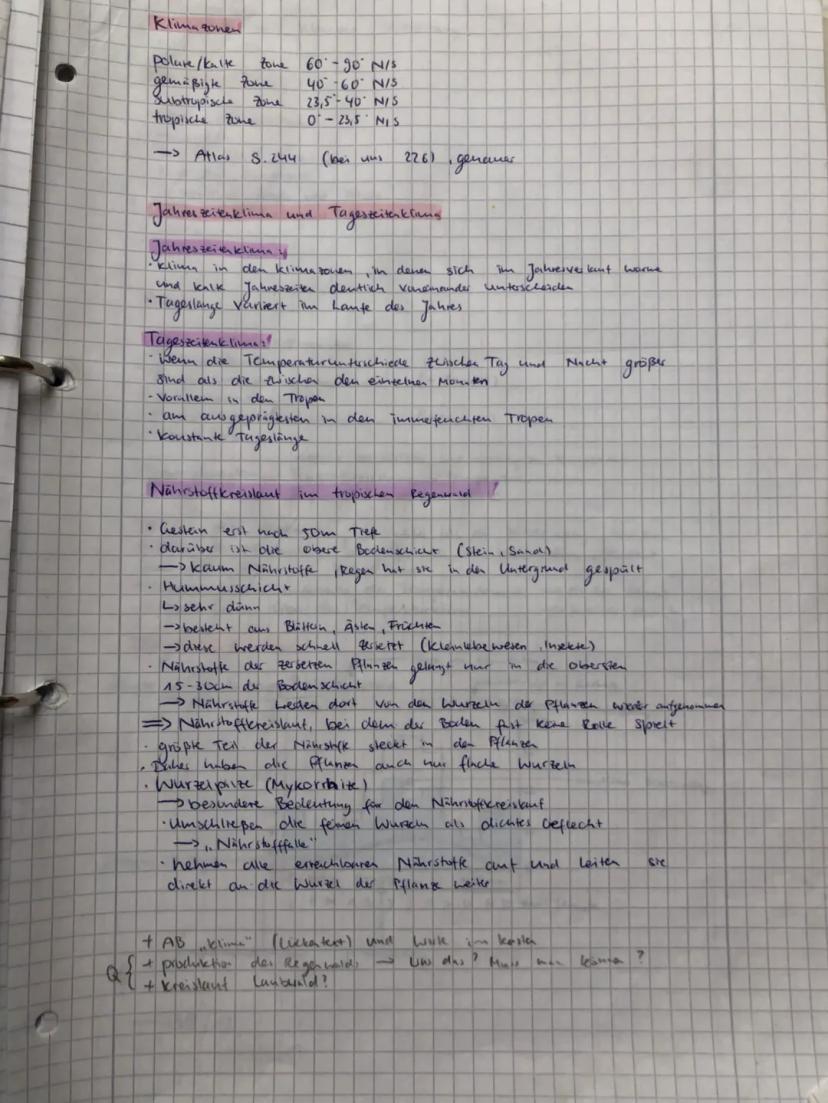 Klimazonen
polare/kalte Zone 60° - 90° N/S
gemäßigte Zone 40° - 60° N/S
Subtropische Zone 23,5° - 40° N/S
tropische Zone 0° - 23,5° N/S
→ Atlas S. 244 (bei uns 226), genauer
Jahreszeitenklima und Tageszeitenklima
Jahreszeitenklima:
· Klima in den Klimazonen, in denen sich im Jahresverlauf warme
und kalte Jahreszeiten deutlich voneinander unterscheiden
· Tageslänge variiert im Laufe des Jahres
Tageszeitenklima:
· Wenn die Temperaturunterschiede zwischen Tag und Nacht größer
sind als die zwischen den einzelnen Monaten
· Vorallem in den Tropen
· am ausgeprägtesten in den immerfeuchten Tropen
· Konstante Tageslänge
Nährstoffkreislauf im tropischen Regenwald
· Gestein erst nach 50m Tiefe
· darüber ist die obere Bodenschicht (Stein, Sand)
→ kaum Nährstoffe, Regen hat sie in den Untergrund gespült
· Hummusschicht
↳ sehr dünn
→ besteht aus Blättern, Ästen, Früchten
→ diese werden schnell zersetzt (Kleinlebewesen, Insekte)
· Nährstoffe der zersetzten Pflanzen gelangt nur in die obersten
15-30cm der Bodenschicht
→ Nährstoffe werden dort von den Wurzeln der Pflanzen wieder aufgenommen
⇒ Nährstoffkreislauf, bei dem der Boden fast keine Rolle spielt
· größte Teil der Nährstoffe steckt in den Pflanzen
· Daher haben die Pflanzen auch nur flache Wurzeln
· Wurzelpilze (Mykorrhize)
→ besondere Bedeutung für den Nährstoffkreislauf
· Umschließen die feinen Wurzeln als dichtes Geflecht
→ „Nährstofffalle"
· nehmen alle erreichbaren Nährstoffe auf und leiten sie
direkt an die Wurzel der Pflanze weiter
+ AB „Klima" (Lückentext) und
Q { + produktion des Regenwalds → das? Muss man können?
+ Kreislauf Laubwald?